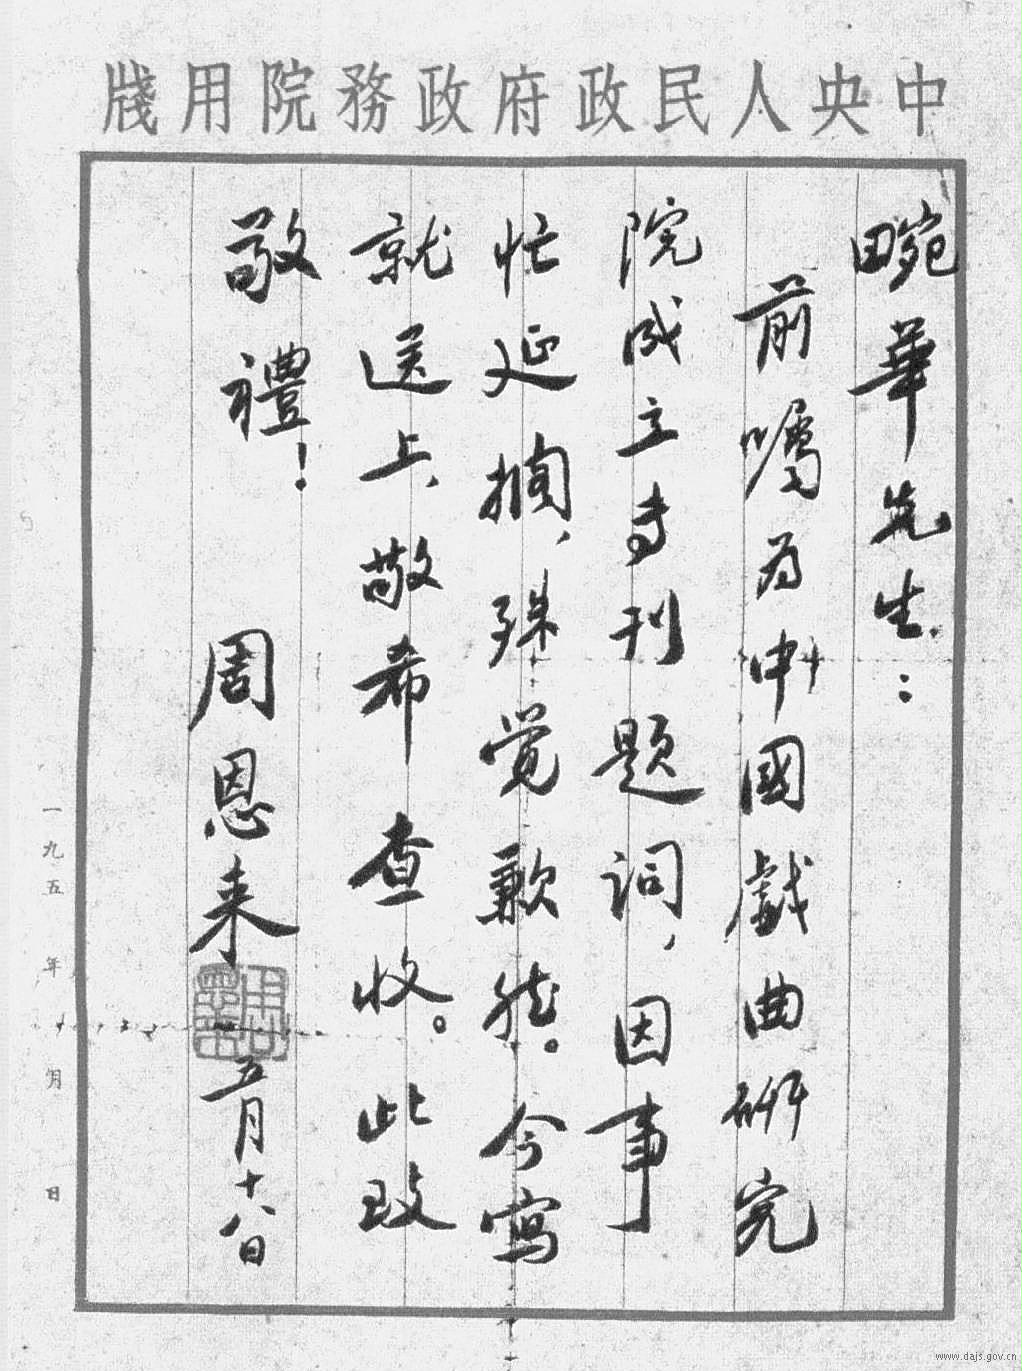 中央人民政府政務院用牋
畹華先生：
前嘱为中國戯曲研究
院成立专刊题词，因事
忙延搁，殊觉歉然。今寫
就送上，敬希查收。此致
敬禮！
周恩来
五月十八日
一九五 年 月 日
www.dajs.gov.cn